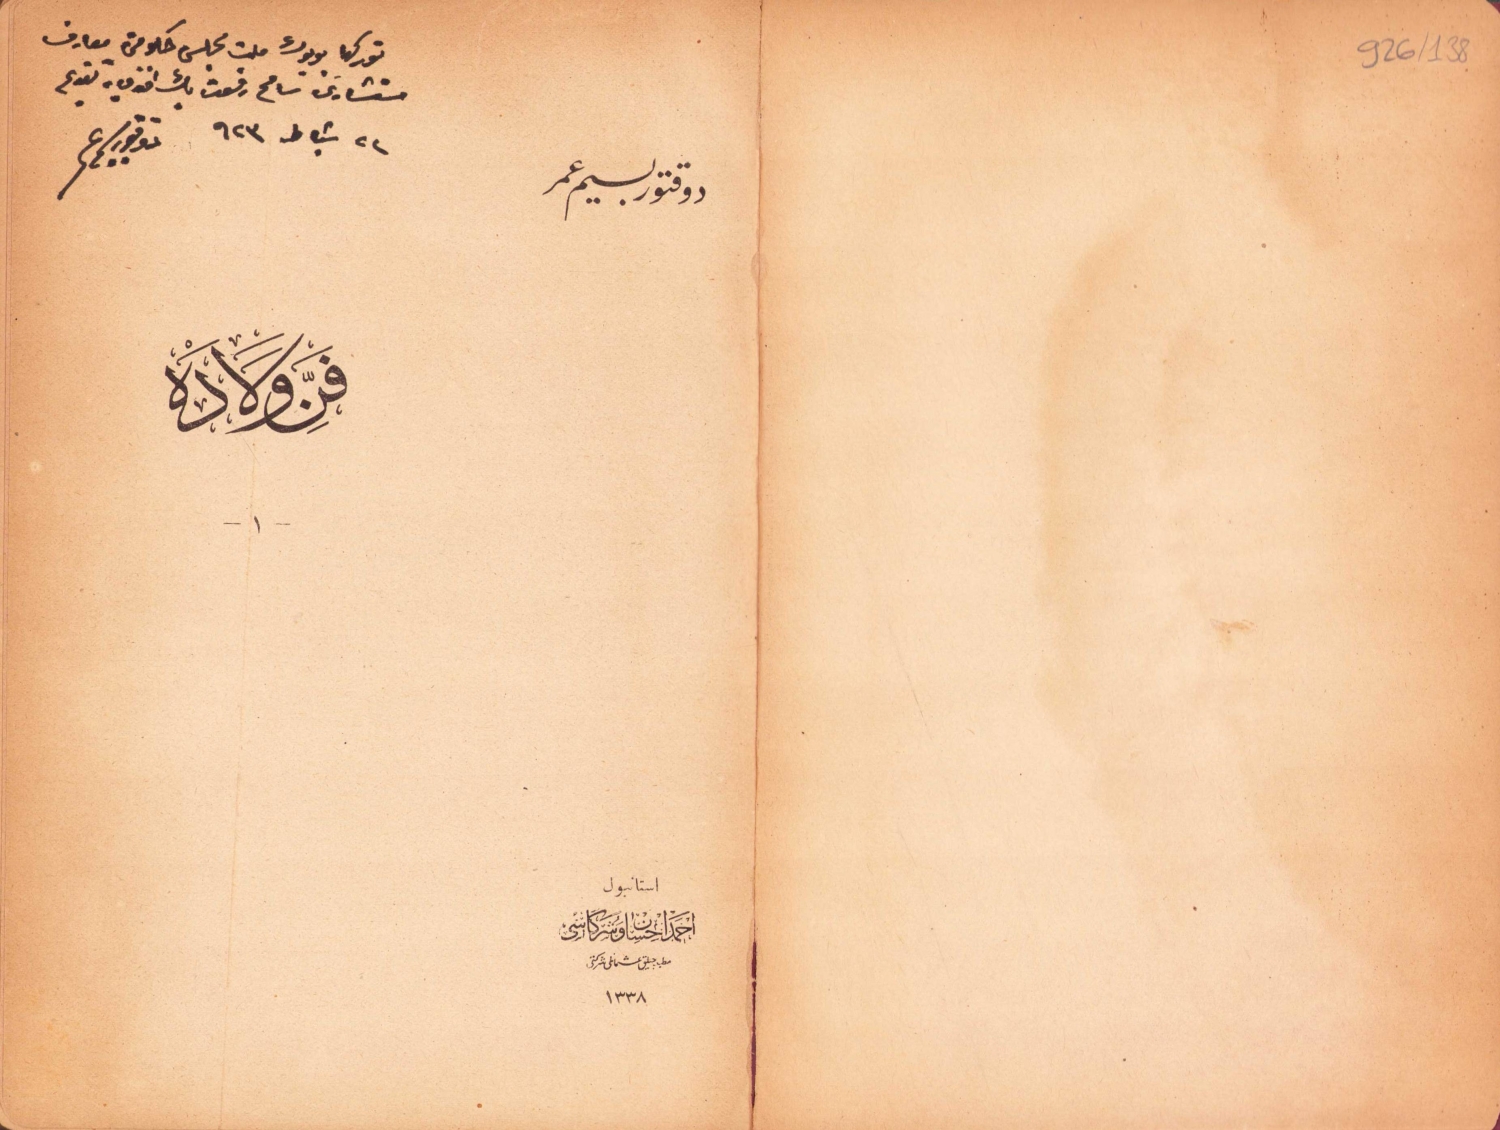 توركيا بويوك ملت مجلسى حكومتى معارف
مستشارى سامح رفعت بك افندى يه تقديم
٢٢ شباط ٩٢٣
دوقتور
926/138
دوقتور بسيم عمر
فن ولاده
— ١ —
استانبول
احمد احسان و شركاسى
مطبعه جيلق عثمانلى شركتى
١٣٣٨